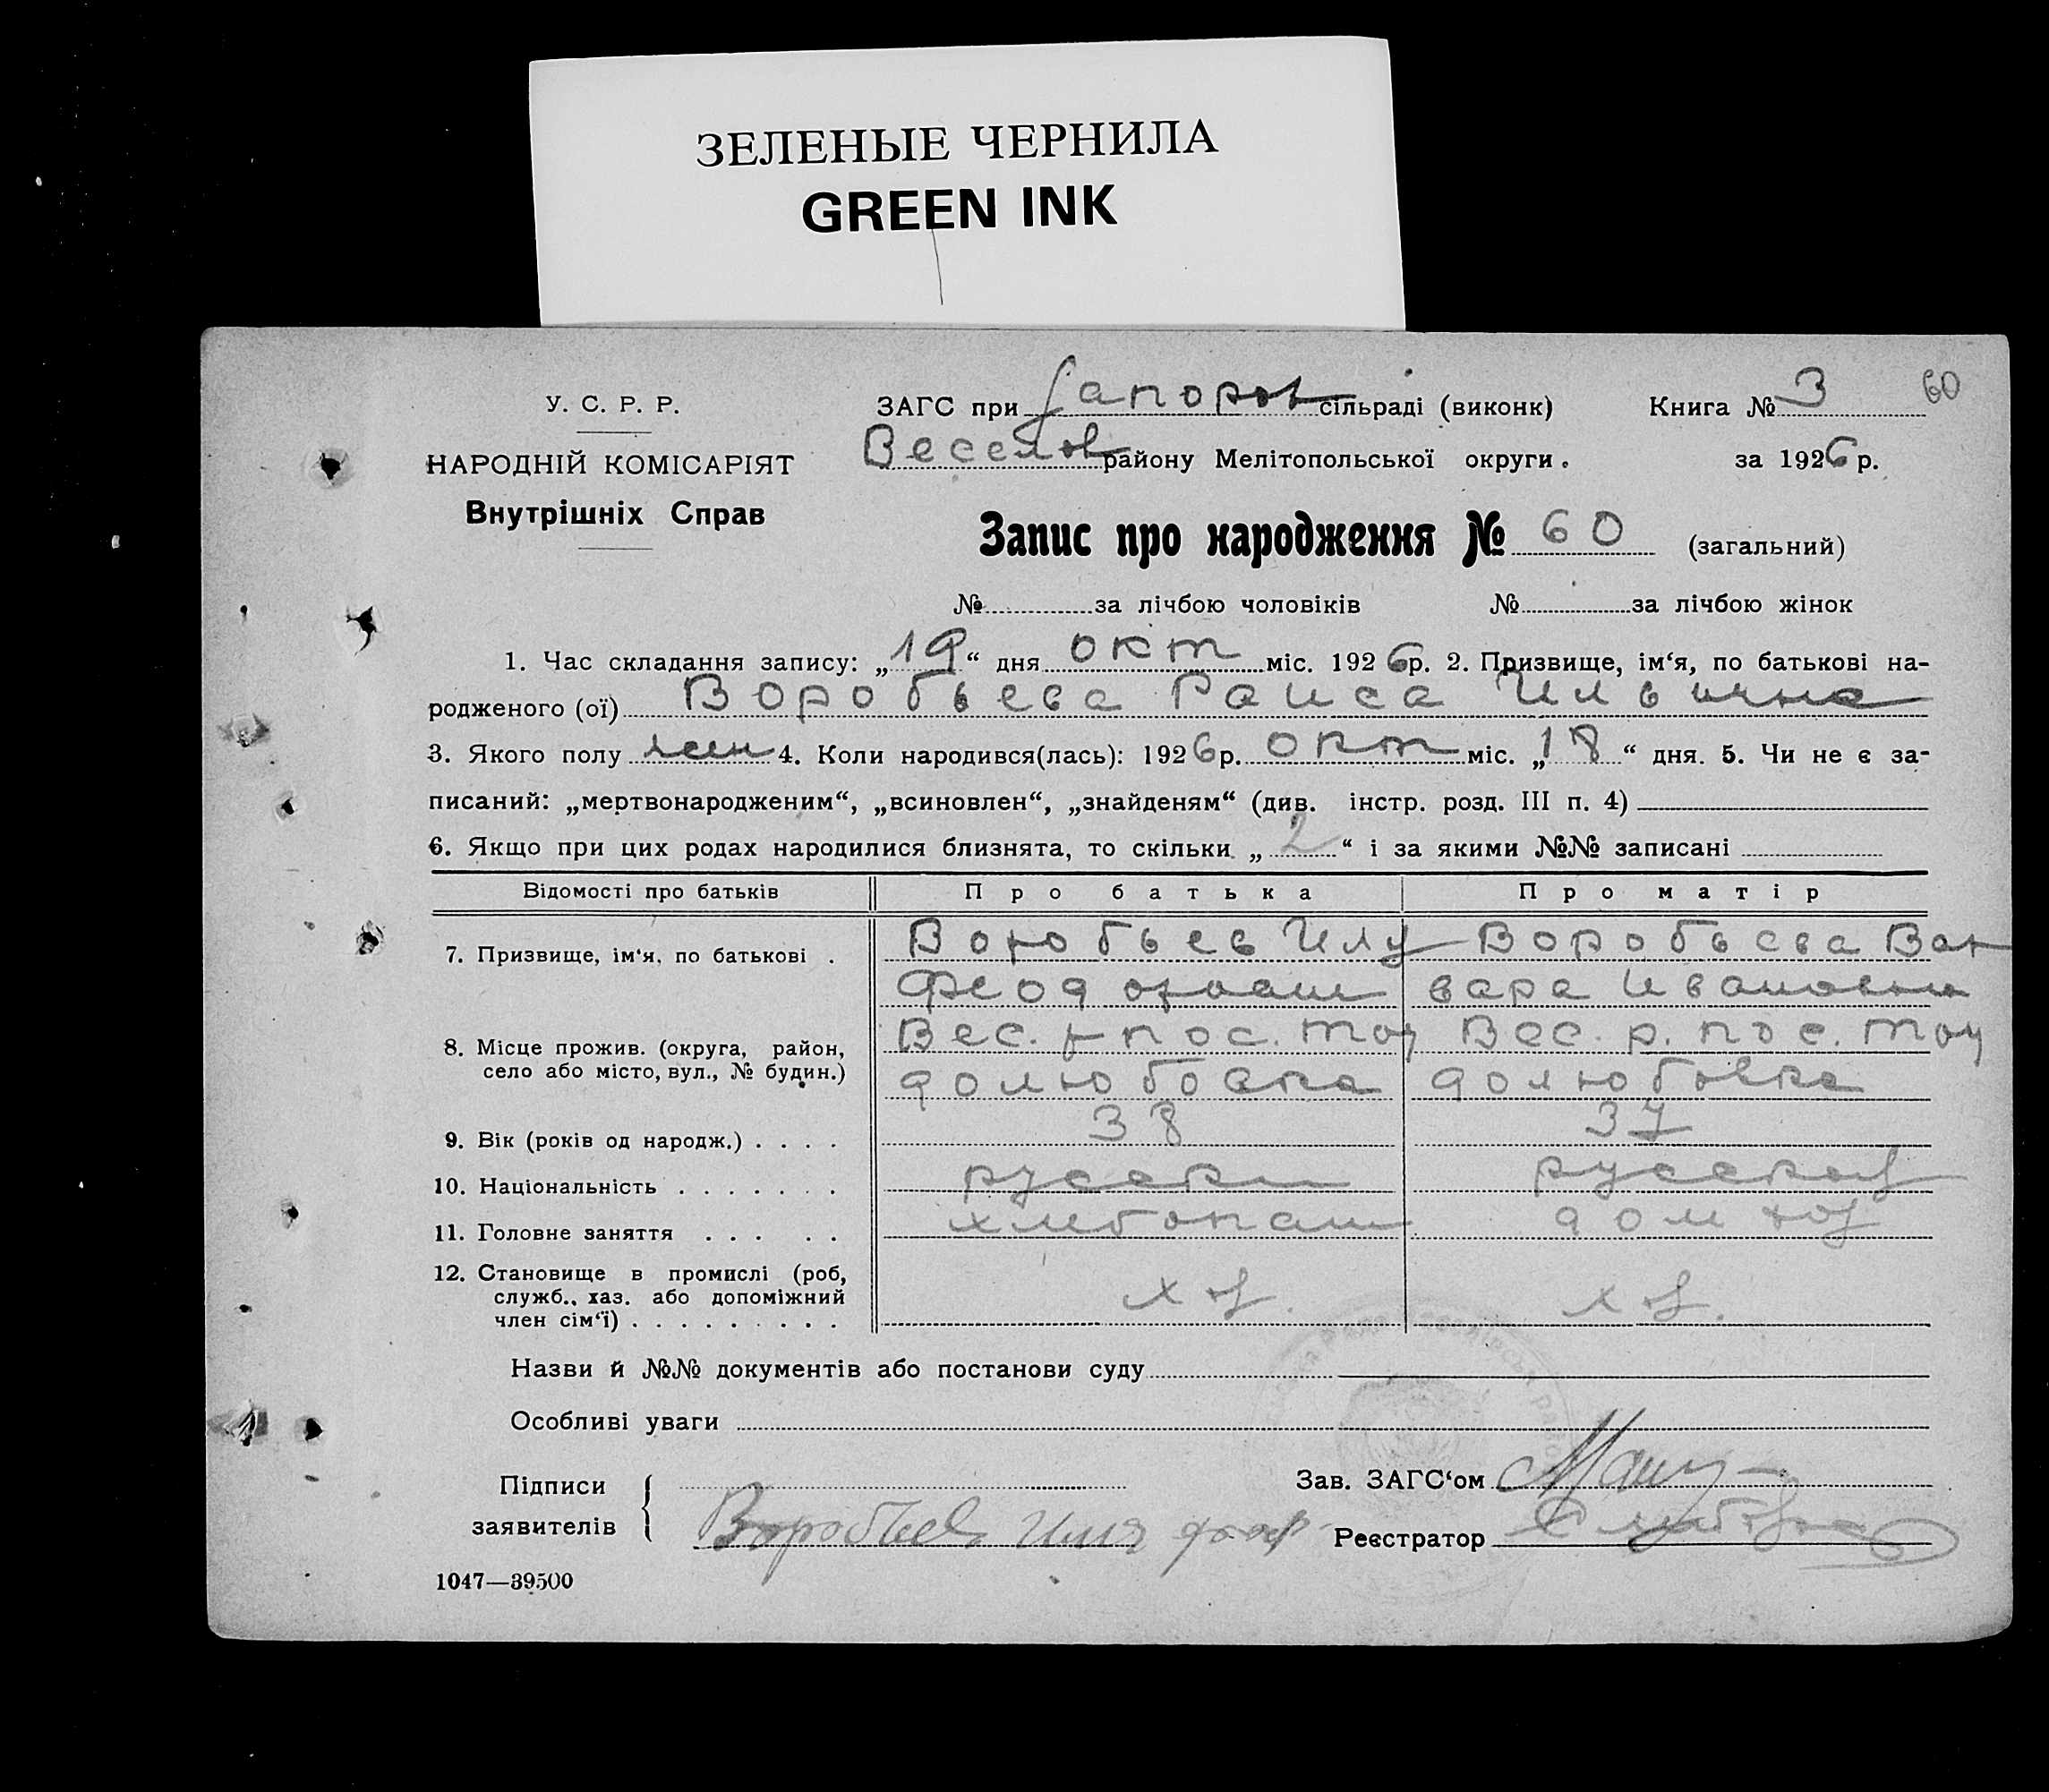 ЗЕЛЕНЫЕ ЧЕРНИЛА
GREEN INK
У. С. Р. Р.
НАРОДНІЙ КОМІСАРІЯТ
Внутрішніх Справ
ЗАГС при Запоров сільраді (виконк) Книга № 3 60
Веселов району Мелітопольської округи. за 1926 р.
Запис про народження № 60 (загальний)
№ за лічбою чоловіків № за лічбою жінок
1. Час складання запису: „19“ дня окт міс. 1926 р. 2. Призвище, ім‘я, по батькові на-
родженого (ої) Воробьева Раиса Ильична
3. Якого полу жен 4. Коли народився(лась): 1926 р. окт міс. „18“ дня. 5. Чи не є за-
писаний: „мертвонародженим“, „всиновлен“, „знайденям“ (див. інстр. розд. III п. 4)
6. Якщо при цих родах народилися близнята, то скільки „2“ і за якими №№ записані
Відомості про батьків Про батька Про матір
7. Призвище, ім‘я, по батькові . Воробьев Илу Воробьева Вар
Феодорович вара Ивановна
8. Місце прожив. (округа, район, село або місто, вул., № будин.) Вес. р пос. Тоу Вес. р. пос. Тоу
долюбовка долюбовка
9. Вік (років од народж.) . . . . 38 37
10. Національність . . . . . . . русски русская
11. Головне заняття . . . . . хлебопаш дом хоз
12. Становище в промислі (роб,
служб., хаз. або допоміжний
член сім‘ї) . . . . . . . . . хоз. хоз.
Назви й №№ документів або постанови суду
Особливі уваги
Підписи
заявителів
Воробьев Илия
Зав. ЗАГС‘ом
Реєстратор
1047—39500